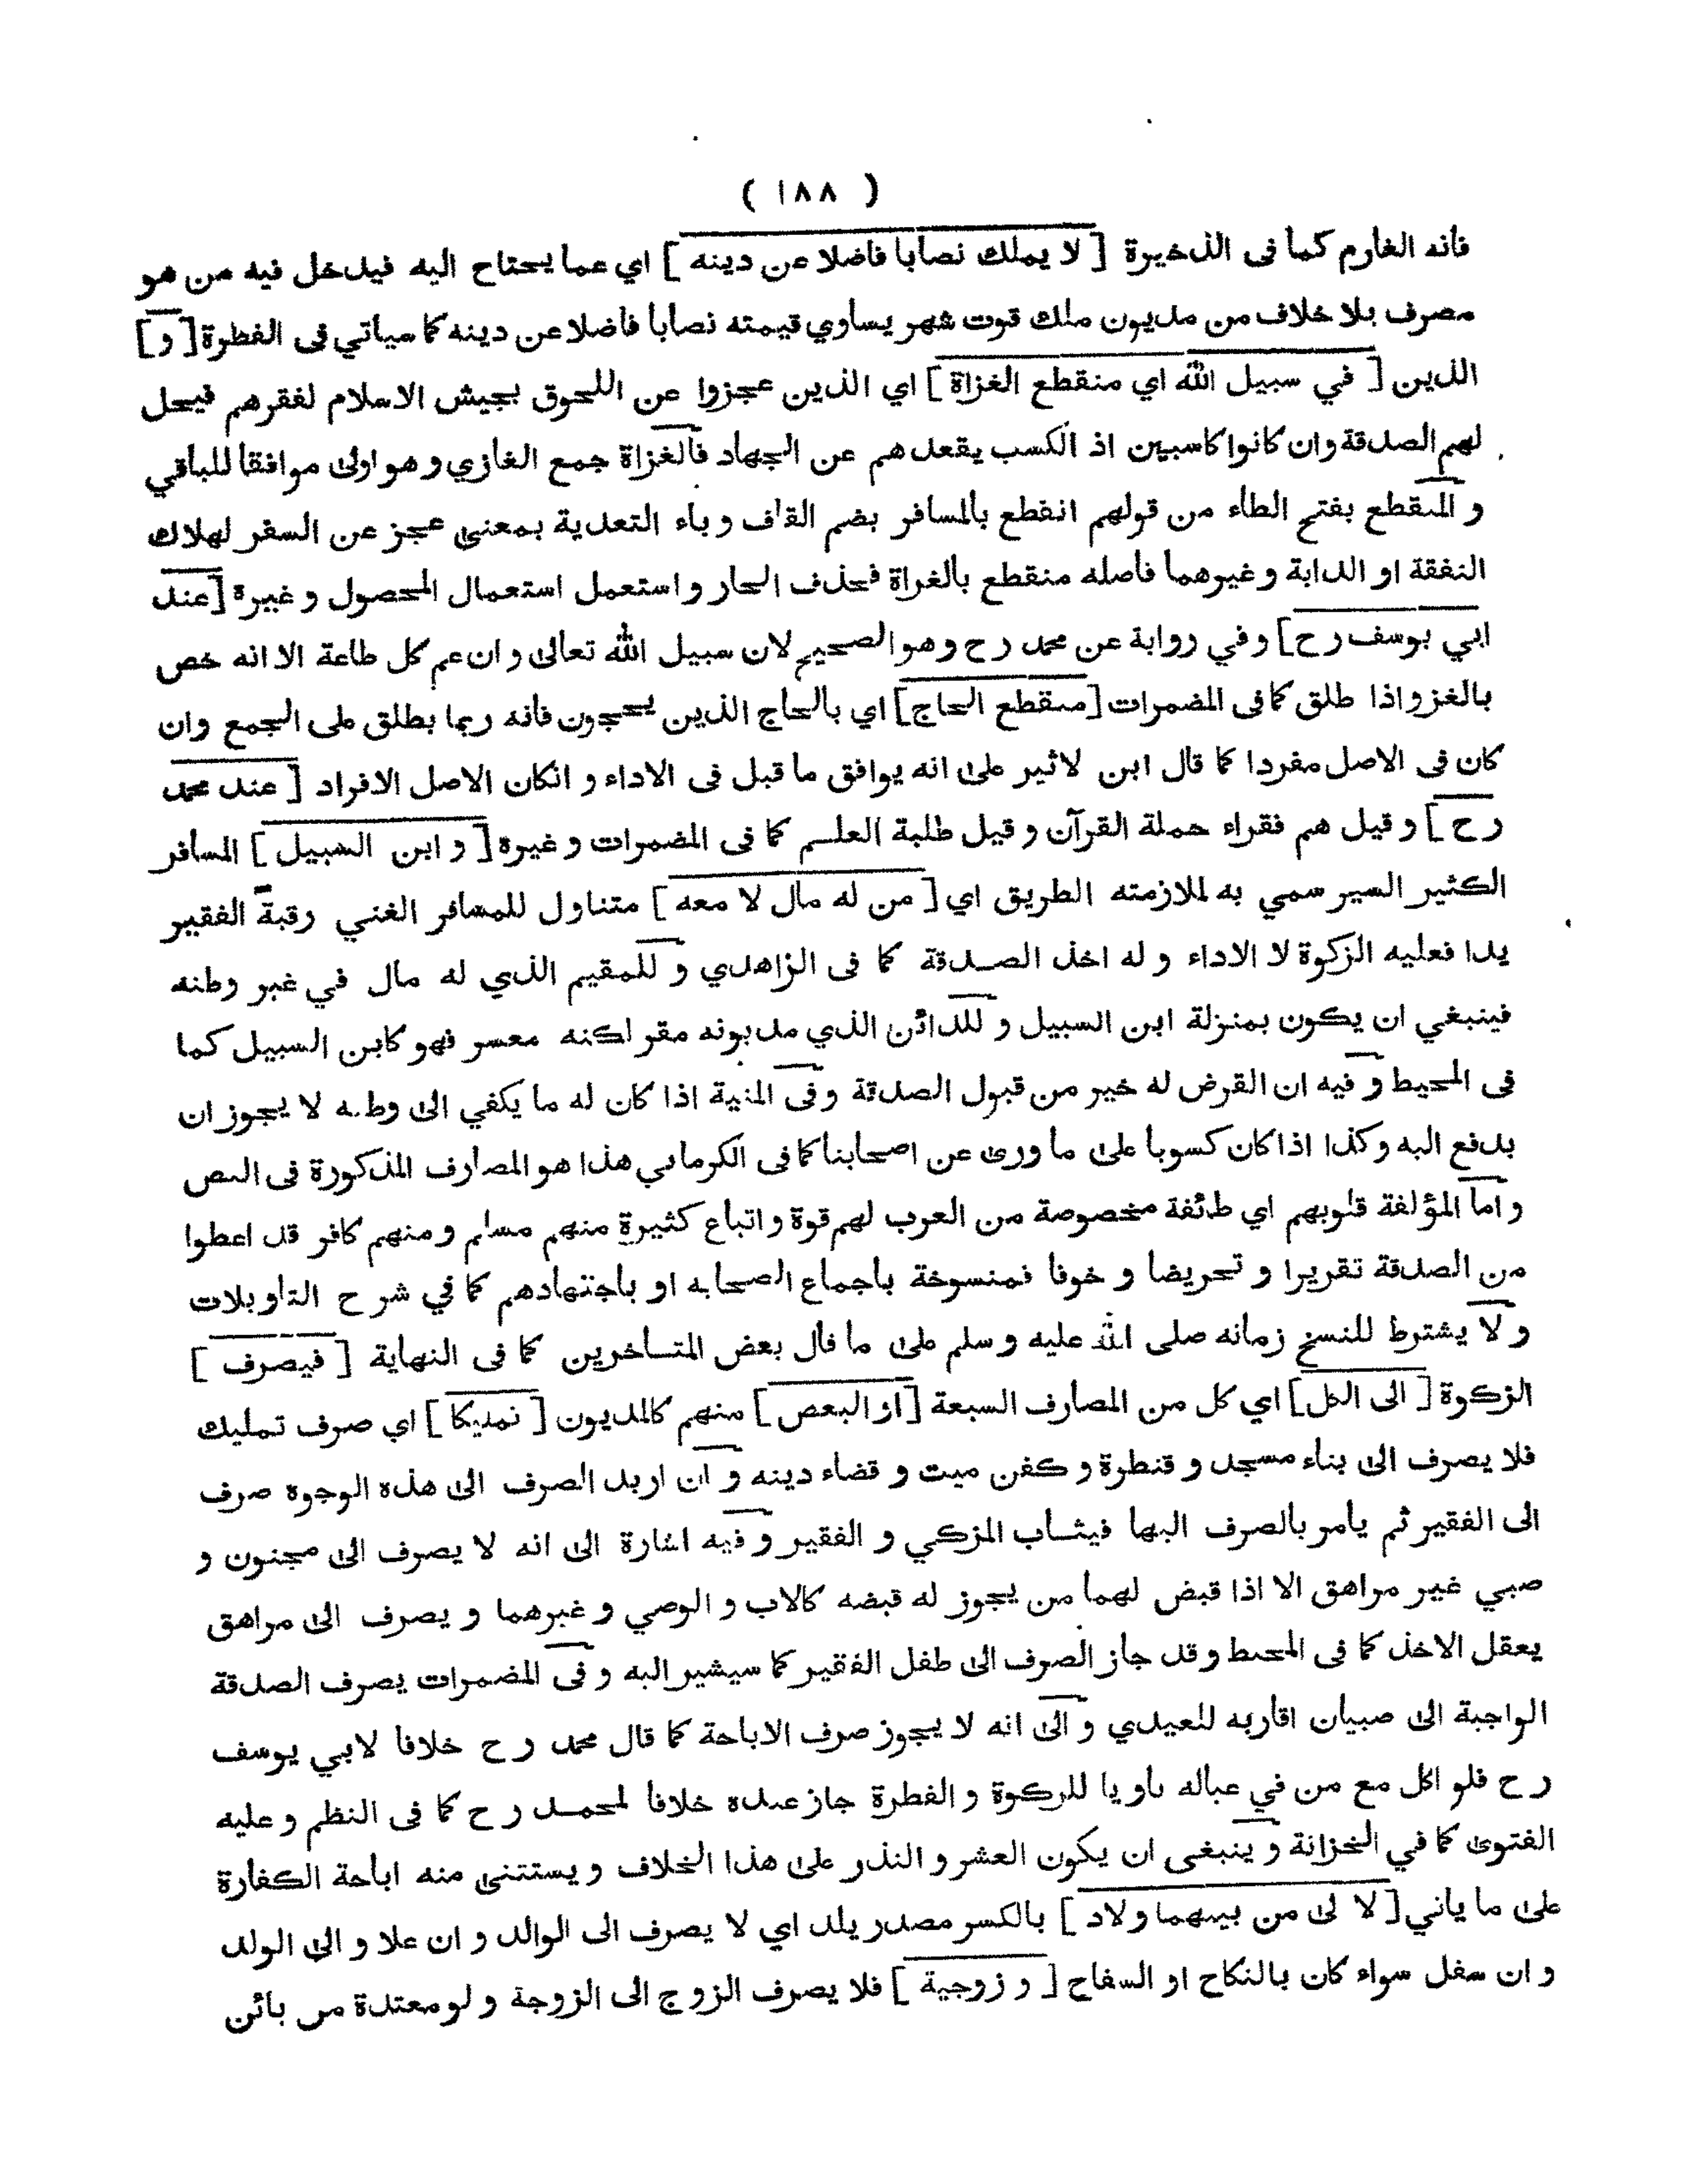 ( ١٨٨ )
فانه الغارم كما فى الذخيرة [ لا يملك نصابا فاضلا عن دينه ] اي عما يحتاج اليه فيدخل فيه من هو
مصرف بلا خلاف من مديون ملك قوت شهر يساوي قيمته نصابا فاضلا عن دينه كما سياتي فى الفطرة [ و ]
الذين [ في سبيل الله اي منقطع الغزاة ] اي الذين عجزوا عن اللحوق بجيش الاسلام لفقرهم فيحل
لهم الصدقة وان كانوا كاسبين اذ الكسب يقعدهم عن الجهاد فالغزاة جمع الغازي و هو اولى موافقا للباقي
و المنقطع بفتح الطاء من قولهم انقطع بالمسافر بضم القاف و باء التعدية بمعنى عجز عن السفر لهلاك
النفقة او الدابة و غيرهما فاصله منقطع بالغزاة فحذف الجار و استعمل استعمال المحصول و غيره [ عند
ابي يوسف رح ] و في رواية عن محمد رح و هو الصحيح لان سبيل الله تعالى و ان عم كل طاعة الا انه خص
بالغزو اذا طلق كما فى المضمرات [ منقطع الحاج ] اي بالحاج الذين يحجون فانه ربما يطلق على الجمع وان
كان فى الاصل مفردا كما قال ابن لاثير على انه يوافق ما قبل فى الاداء و انكان الاصل الافراد [ عند محمد
رح ] و قيل هم فقراء حملة القرآن و قيل طلبة العلم كما فى المضمرات و غيره [ و ابن السبيل ] المسافر
الكثير السير سمي به لملازمته الطريق اي [ من له مال لا معه ] متناول للمسافر الغني رقبة الفقير
يدا فعليه الزكوة لا الاداء و له اخذ الصدقة كما فى الزاهدي و للمقيم الذي له مال في غير وطنه
فينبغي ان يكون بمنزلة ابن السبيل و للدائن الذي مديونه مقر لكنه معسر فهو كابن السبيل كما
فى المحيط و فيه ان القرض له خير من قبول الصدقة و فى المنية اذا كان له ما يكفي الى وطنه لا يجوز ان
يدفع اليه و كذا اذا كان كسوبا على ما روى عن اصحابنا كما فى الكرماني هذا هو المصارف المذكورة فى النص
و اما المؤلفة قلوبهم اي طائفة مخصوصة من العرب لهم قوة و اتباع كثيرة منهم مسلم و منهم كافر قد اعطوا
من الصدقة تقريرا و تحريضا و خوفا فمنسوخة باجماع الصحابه او باجتهادهم كما في شرح التاويلات
و لا يشترط للنسخ زمانه صلى الله عليه و سلم على ما قال بعض المتاخرين كما فى النهاية [ فيصرف ]
الزكوة [ الى الكل ] اي كل من المصارف السبعة [ او البعض ] منهم كالمديون [ تمليكا ] اي صرف تمليك
فلا يصرف الى بناء مسجد و قنطرة و كفن ميت و قضاء دينه و ان اريد الصرف الى هذه الوجوه صرف
الى الفقير ثم يأمر بالصرف اليها فيثاب المزكي و الفقير و فيه اشارة الى انه لا يصرف الى مجنون و
صبي غير مراهق الا اذا قبض لهما من يجوز له قبضه كالاب و الوصي و غيرهما و يصرف الى مراهق
يعقل الاخذ كما فى المحيط و قد جاز الصرف الى طفل الفقير كما سيشير اليه و فى المضمرات يصرف الصدقة
الواجبة الى صبيان اقاربه للعيدي و الى انه لا يجوز صرف الاباحة كما قال محمد رح خلافا لابي يوسف
رح فلو اكل مع من في عياله ناويا للزكوة و الفطرة جاز عنده خلافا لمحمد رح كما فى النظم و عليه
الفتوى كما في الخزانة و ينبغى ان يكون العشر و النذر على هذا الخلاف و يستثنى منه اباحة الكفارة
على ما ياتي [ لا لى من بينهما ولاد ] بالكسر مصدر يلد اي لا يصرف الى الوالد و ان علا و الى الولد
و ان سفل سواء كان بالنكاح او السفاح [ و زوجية ] فلا يصرف الزوج الى الزوجة و لو معتدة من بائن